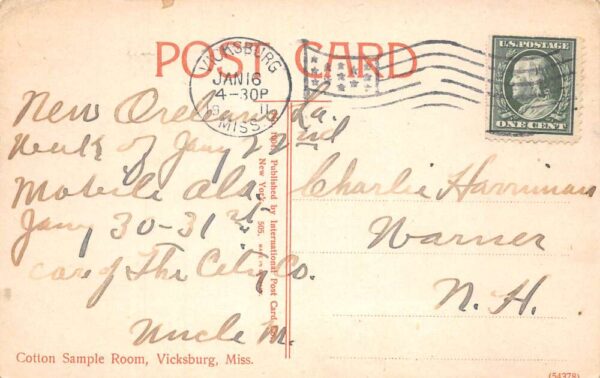 POST CARD
VICKSBURG
JAN 16
4-30P
11
MISS.
U.S. POSTAGE
ONE CENT
New Orleans La.
Week of Jany 22nd
Mobile Ala.
Jany 30-31st
care of The City Co.
Uncle M.
Charlie Harriman
Warner
N. H.
Published by International Post Card
New York. 505.
Cotton Sample Room, Vicksburg, Miss.
(54378)